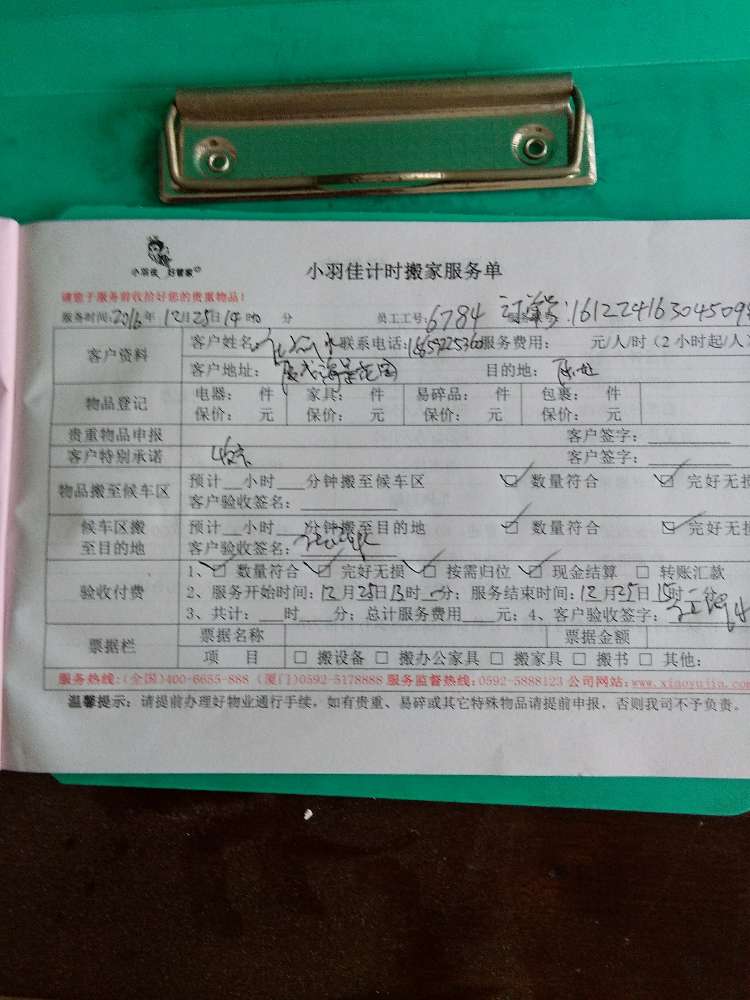 小羽佳 好管家
小羽佳计时搬家服务单
请您于服务前收拾好您的贵重物品!
服务时间:2016年 12月25日14时 分 员工工号:6784 订单号:161224163045098
客户资料 客户姓名 联系电话: 服务费用: 元/人/时(2小时起/人)
客户地址: 目的地:
物品登记 电器: 件 家具: 件 易碎品: 件 包裹: 件
保价: 元 保价: 元 保价: 元 保价: 元
贵重物品申报 客户签字:
客户特别承诺 客户签字:
物品搬至候车区 预计__小时___分钟搬至候车区 ☑ 数量符合 ☑ 完好无损
客户验收签名:
候车区搬至目的地 预计__小时___分钟搬至目的地 ☑ 数量符合 ☑ 完好无损
客户验收签名:
验收付费 1、☑ 数量符合 ☑ 完好无损 ☑ 按需归位 ☑ 现金结算 □ 转账汇款
2、服务开始时间:12月25日13时__分; 服务结束时间:12月25日15时__分
3、共计:___时___分; 总计服务费用___元; 4、客户验收签字:
票据栏 票据名称 票据金额
项 目 □ 搬设备 □ 搬办公家具 □ 搬家具 □ 搬书 □ 其他:
服务热线:(全国)400-6655-888 (厦门)0592-5178888 服务监督热线:0592-5888123 公司网站:www.xiaoyujia.com
温馨提示: 请提前办理好物业通行手续,如有贵重、易碎或其它特殊物品请提前申报,否则我司不予负责。